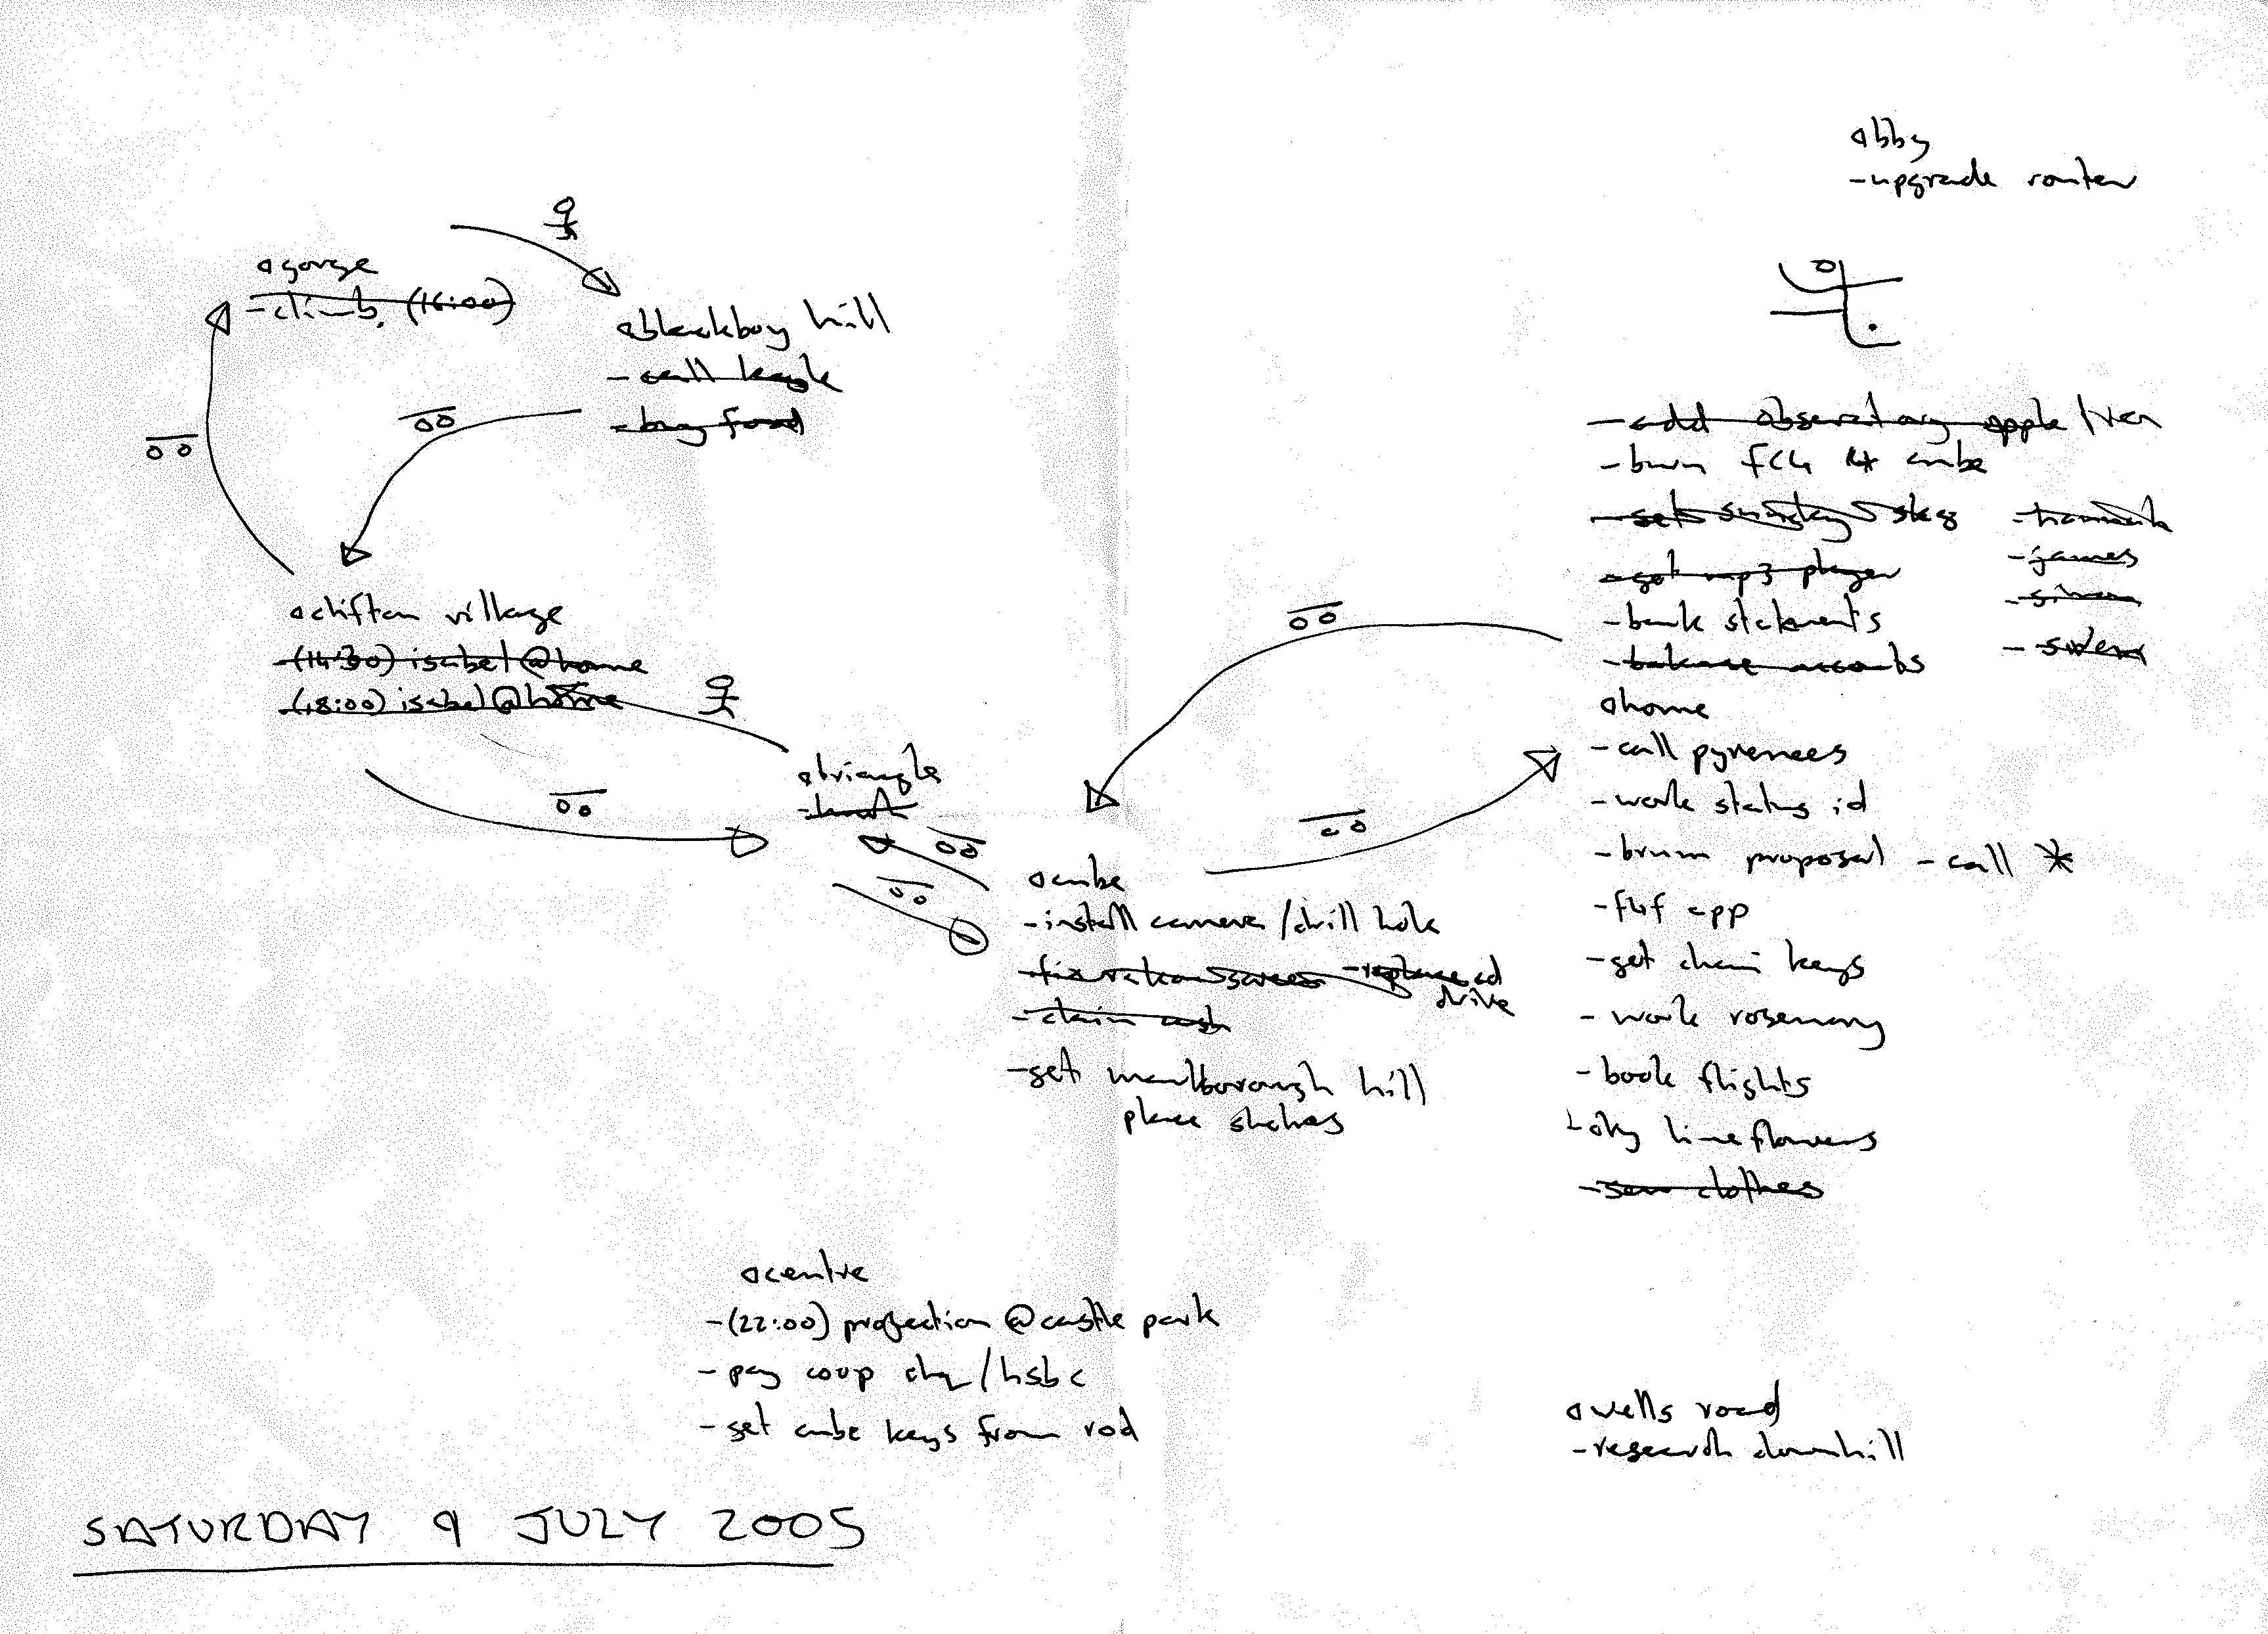 abby
-upgrade router
gorge
-climb (16:00)
blackboy hill
-call kayle
-buy food
clifton village
-(14:30) isabel@home
-(18:00) isabel@home
triangle
cube
-install camera/drill hole
-replace cd drive
-claim cash
-get marlborough hill
place shelves
-add observatory apple
-burn fc4 cube
-get mp3 player
-james
-bank statements
-balance accounts
home
-call pyrenees
-work status id
-brum proposal -call *
-f4f app
-get chain keys
-work rosemary
-book flights
-dry lime flowers
-sew clothes
centre
-(22:00) projection @castle park
-pay coop chq/hsbc
-get cube keys from rod
wells road
-research downhill
SATURDAY 9 JULY 2005